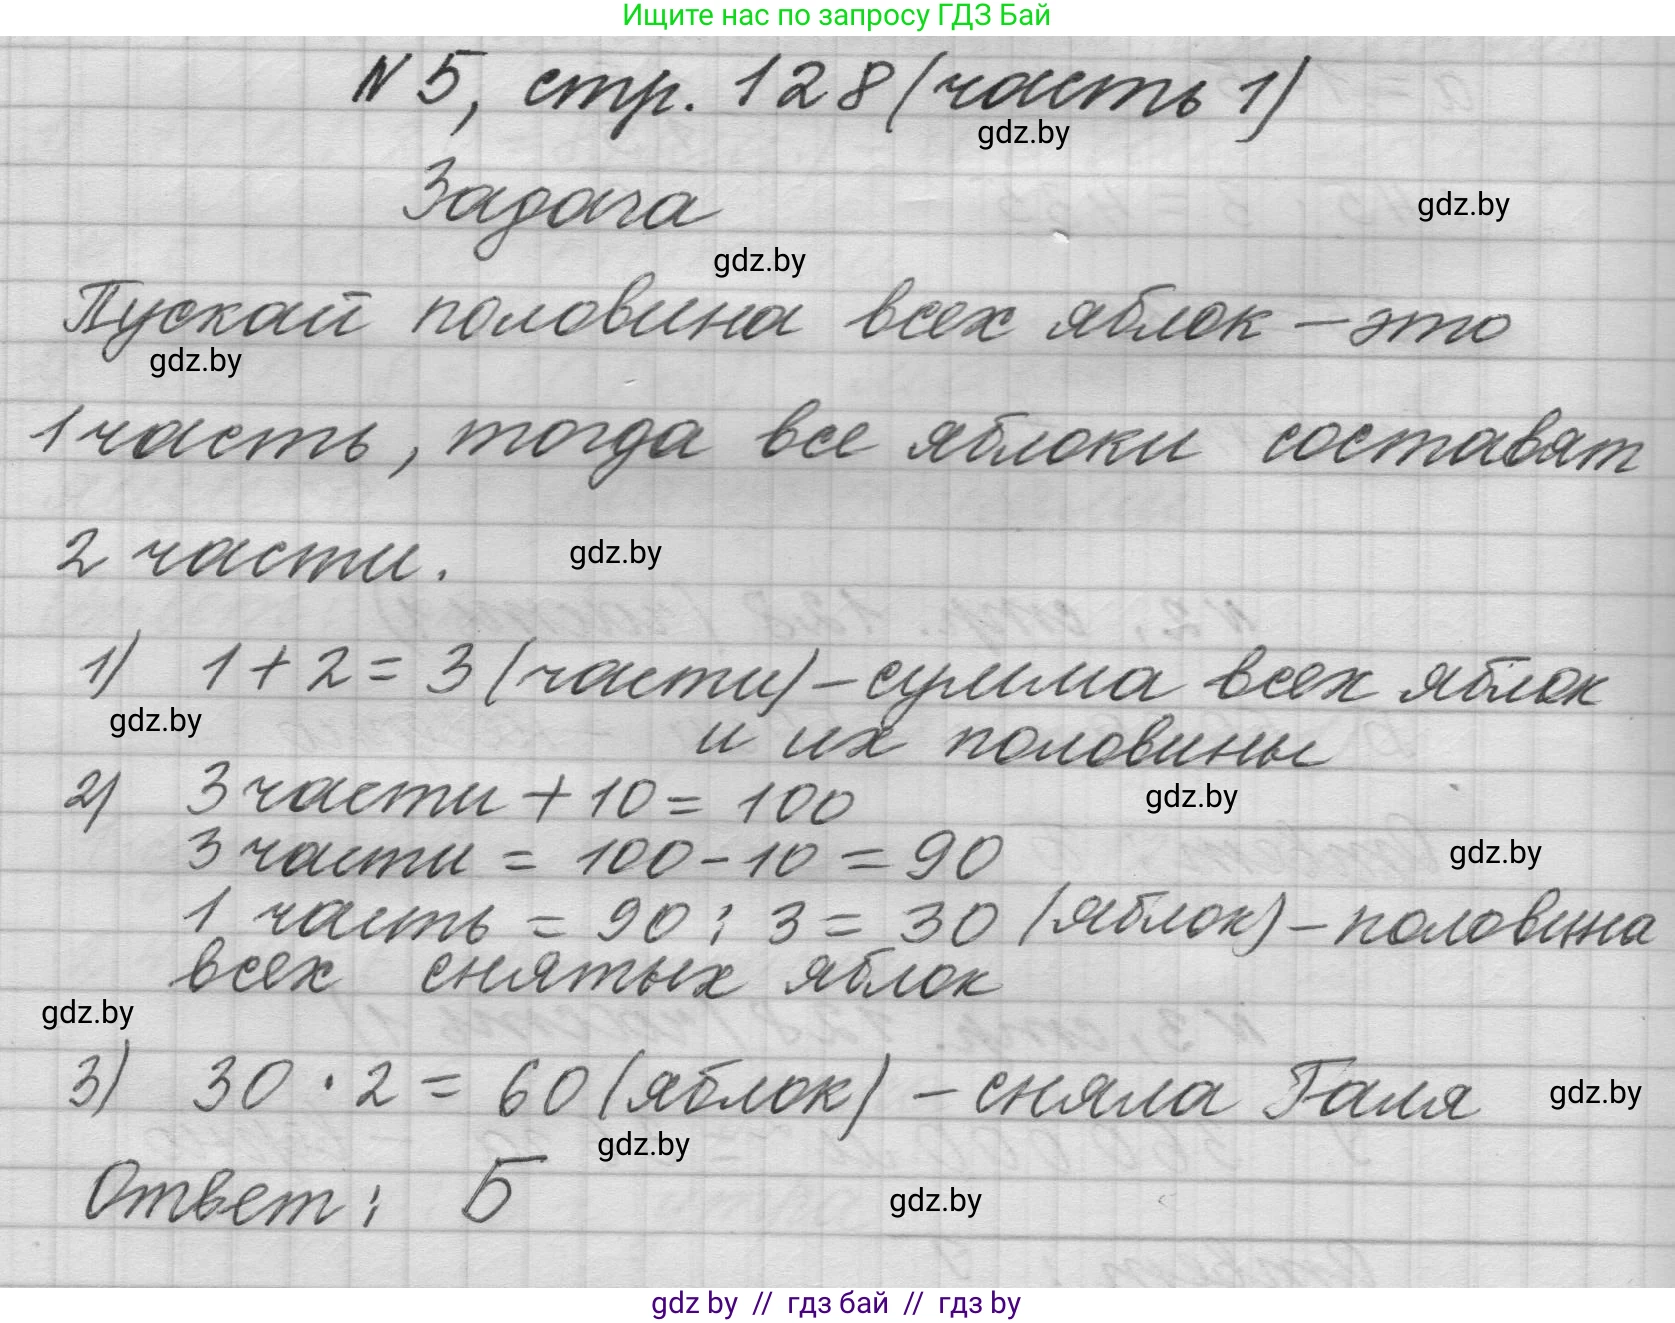 Ищите нас по запросу ГДЗ Бай
№5, стр. 128 (часть 1)
gdz.by
Задача
gdz.by
gdz.by
Пускай половина всех яблок – это
gdz.by
1 часть, тогда все яблоки составят
2 части.
gdz.by
1) 1 + 2 = 3 (части) – сумма всех яблок
gdz.by
и их половины
2) 3 части + 10 = 100
gdz.by
3 части = 100 - 10 = 90
gdz.by
1 часть = 90 : 3 = 30 (яблок) – половина
всех снятых яблок
gdz.by
3) 30 · 2 = 60 (яблок) – сняла Галя
gdz.by
gdz.by
Ответ: Б
gdz.by
gdz by // гдз бай // гдз by